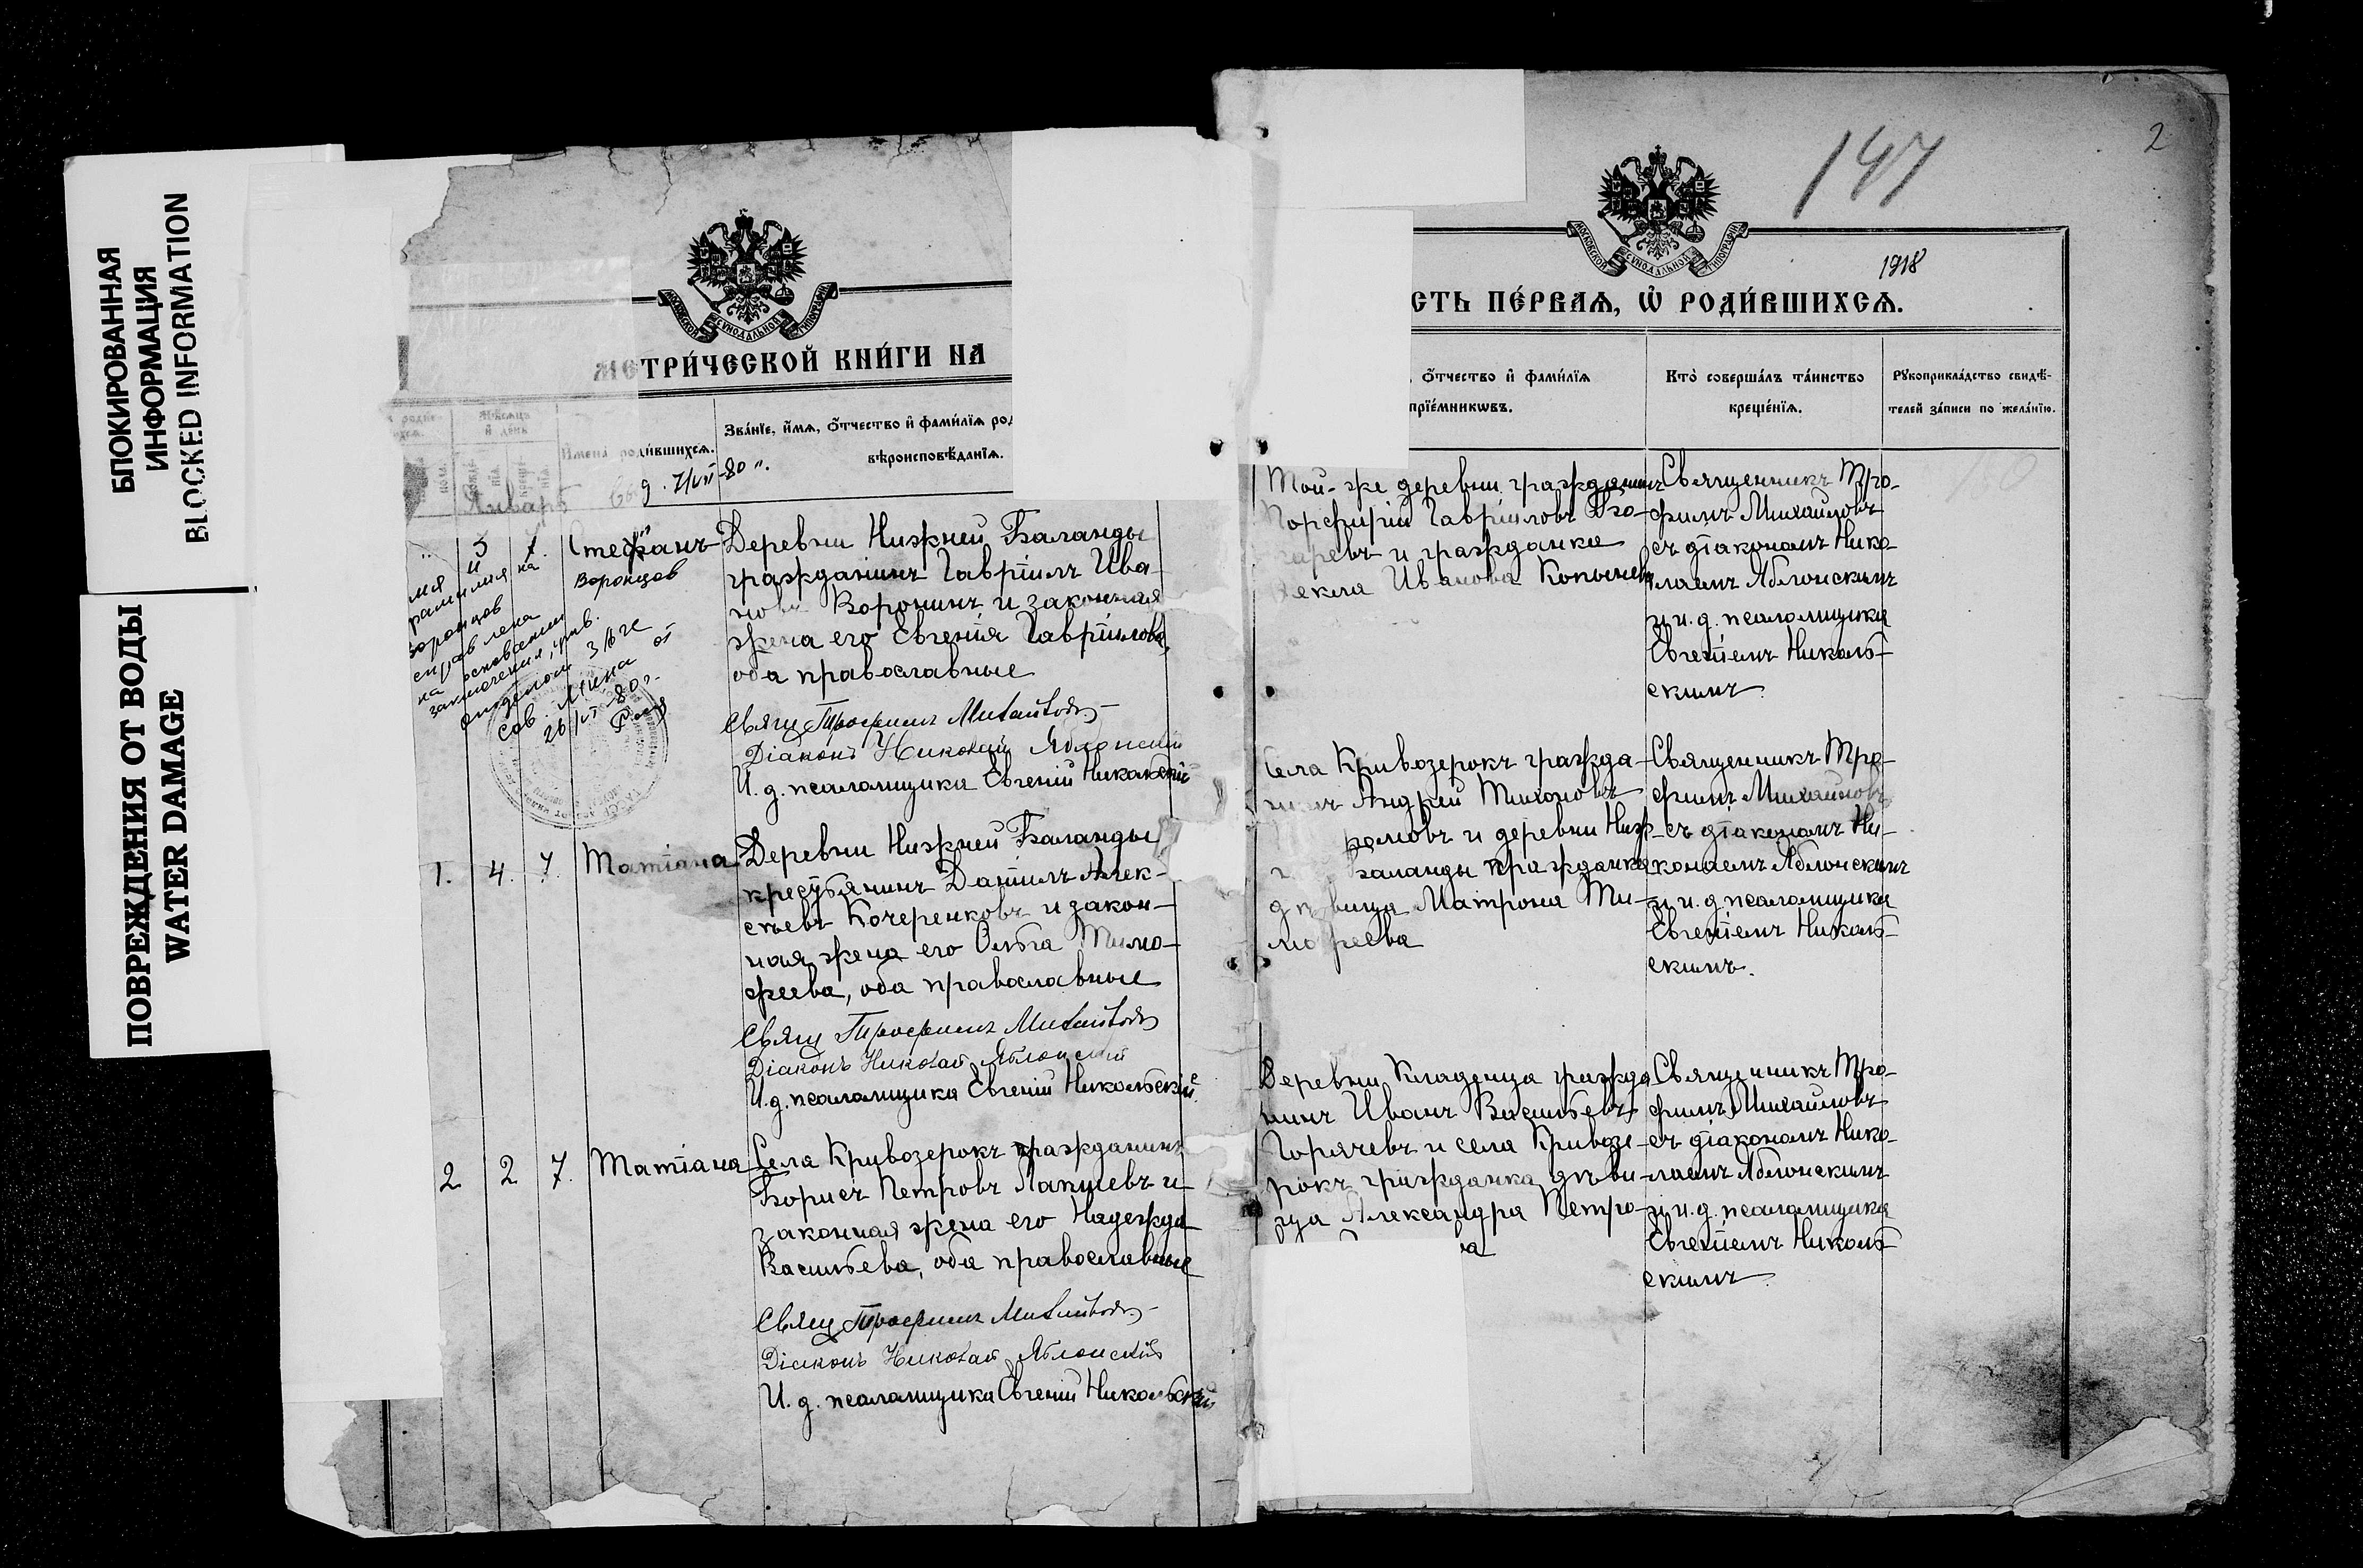 БЛОКИРОВАННАЯ
ИНФОРМАЦИЯ
BLOCKED INFORMATION
ПОВРЕЖДЕНИЯ ОТ ВОДЫ
WATER DAMAGE
МОСКОВСКОЙ СУНОДАЛЬНОЙ ТИПОГРАФІИ
МЕТРИ́ЧЕСКОЙ КНИ́ГИ НА
Мѣсяцъ
и день
Имена роди́вшихсѧ.
Зва́нїе, и́мѧ, ѻ҆́тчество и҆ фами́лїѧ род
вѣроисповѣ́данїѧ.
Январь
80 г.
5
7.
Стефанъ
Воронцов
фамилия на
Воронцов
исправлена
на основании
заключения,
26/VI 80 г.
Деревни Нижней Баланды
гражданинъ Гавріилъ Ива-
новъ Воронинъ и законная
жена его Евгенія Гавріилова,
оба православные
Свящ Трофимъ Михайловъ
Діаконъ Николай Яблонскій
И. д. псаломщика Евгеній Никольскій
1.
4.
7.
Татіана
Деревни Нижней Баланды
крестьянинъ Даніилъ Алек-
сѣевъ Кочеренковъ и закон-
ная жена его Ольга Тимо-
феева, оба православные
Свящ Трофимъ Михайловъ
Діаконъ Николай Яблонскій
И. д. псаломщика Евгеній Никольскій
2
2
7.
Татіана
Села Кривозерокъ гражданинъ
Борисъ Петровъ Лапшевъ и
законная жена его Надежда
Васильева, оба православные
Свящ Трофимъ Михайловъ
Діаконъ Николай Яблонскій
И. д. псаломщика Евгеній Никольскій
147
2
МОСКОВСКОЙ СУНОДАЛЬНОЙ ТИПОГРАФІИ
1918
СТЬ ПЕ́РВАѦ, Ѡ҆ РОДИ́ВШИХСѦ.
ѻ҆́тчество и҆ фами́лїѧ
прїе́мникѡвъ.
Кто̀ соверша́лъ та́инство
креще́нїѧ.
Рꙋкоприкла́дство свидѣ́-
телей за́писи по жела́нїю.
Той-же деревни гражданинъ
Порфирій Гавріиловъ Бо-
и гражданка
Ивановна
Священникъ Тро-
фимъ Михайловъ
съ діакономъ Нико-
лаемъ Яблонскимъ
и и. д. псаломщика
Евгеніемъ Николь-
скимъ
Села Кривозерокъ гражда-
нинъ Андрей Тихоновъ
и деревни Ниж-
Баланды гражданка
дѣвица Матрона Ти-
мофеева
Священникъ Тро-
фимъ Михайловъ
съ діакономъ Ни-
колаемъ Яблонскимъ
и и. д. псаломщика
Евгеніемъ Николь-
скимъ.
Деревни Кладенца гражда
нинъ Иванъ Васильевъ
Горячевъ и села Кривозе-
рокъ гражданка дѣви-
ца Александра Петро-
ва
Священникъ Тро-
фимъ Михайловъ
съ діакономъ Нико-
лаемъ Яблонскимъ
и и. д. псаломщика
Евгеніемъ Николь-
скимъ